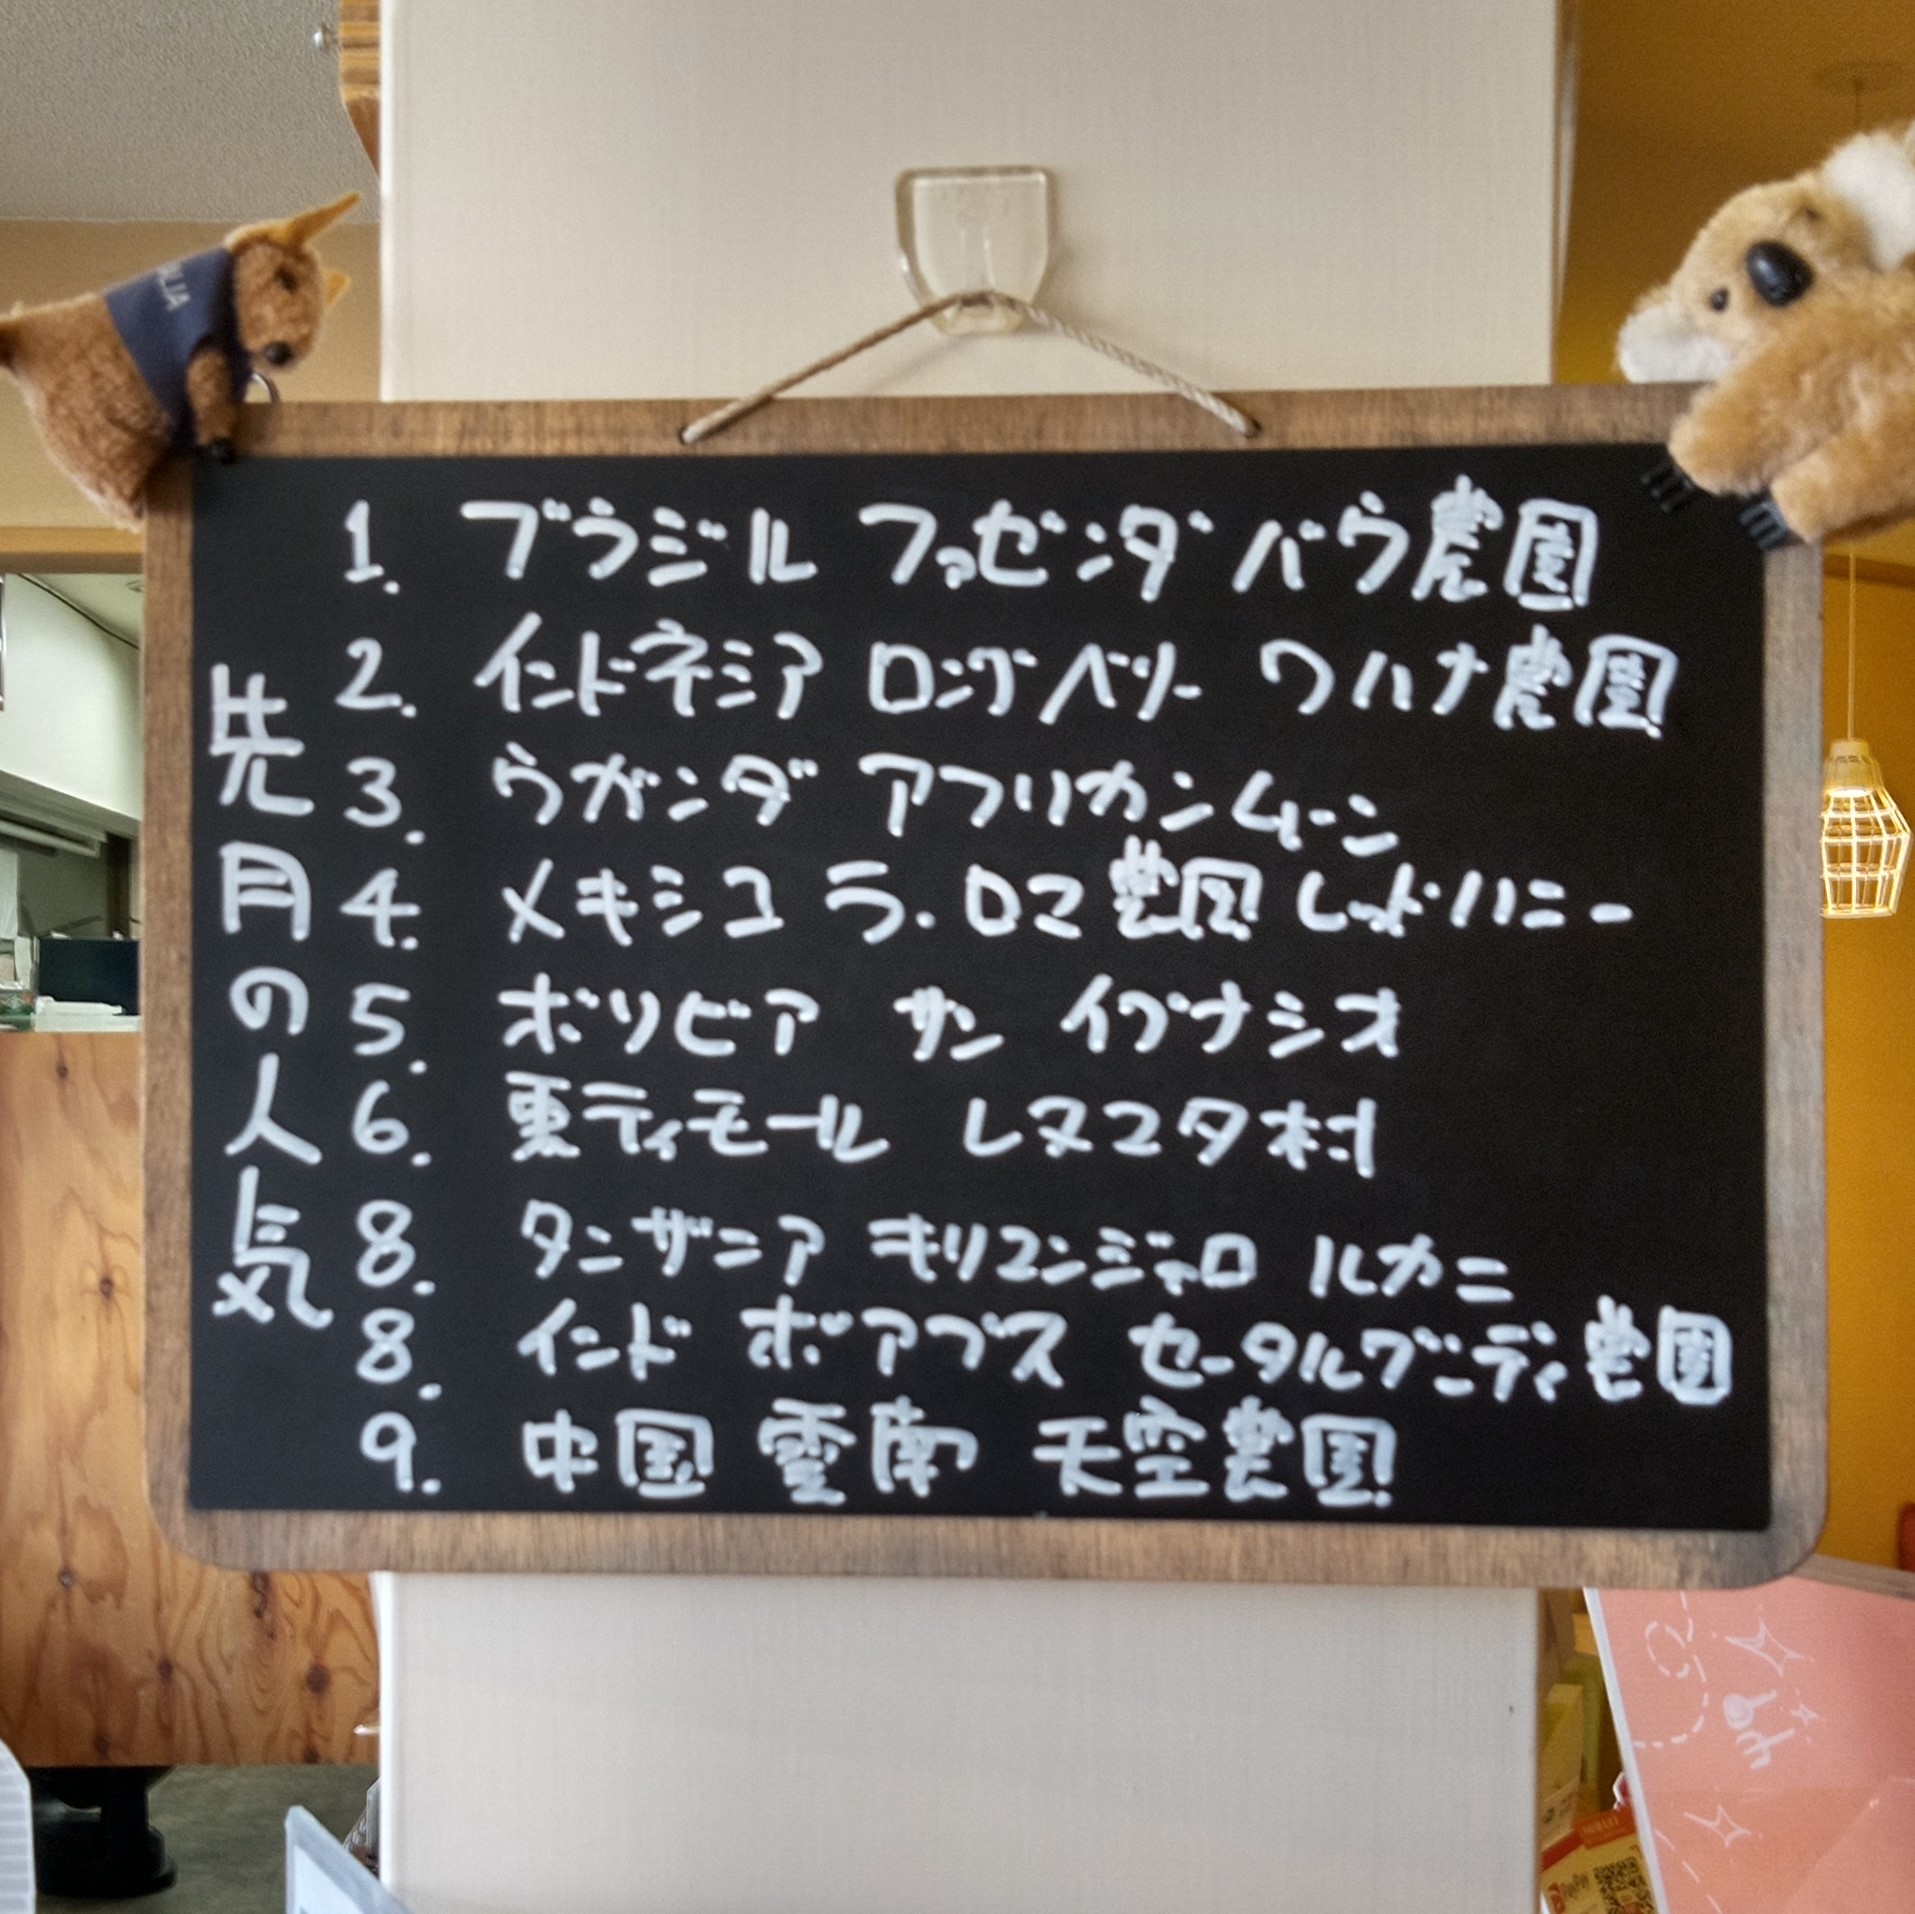 先月の人気
1. ブラジル ファゼンダ バウ農園
2. インドネシア ロングベリー ワハナ農園
3. ウガンダ アフリカンムーン
4. メキシコ ラ・ロマ農園 レッドハニー
5. ボリビア サン イグナシオ
6. 東ティモール レヌコタ村
8. タンザニア キリマンジャロ ルカニ
8. インド ボアブス セータルグンディ農園
9. 中国 雲南 天空農園
PayPay